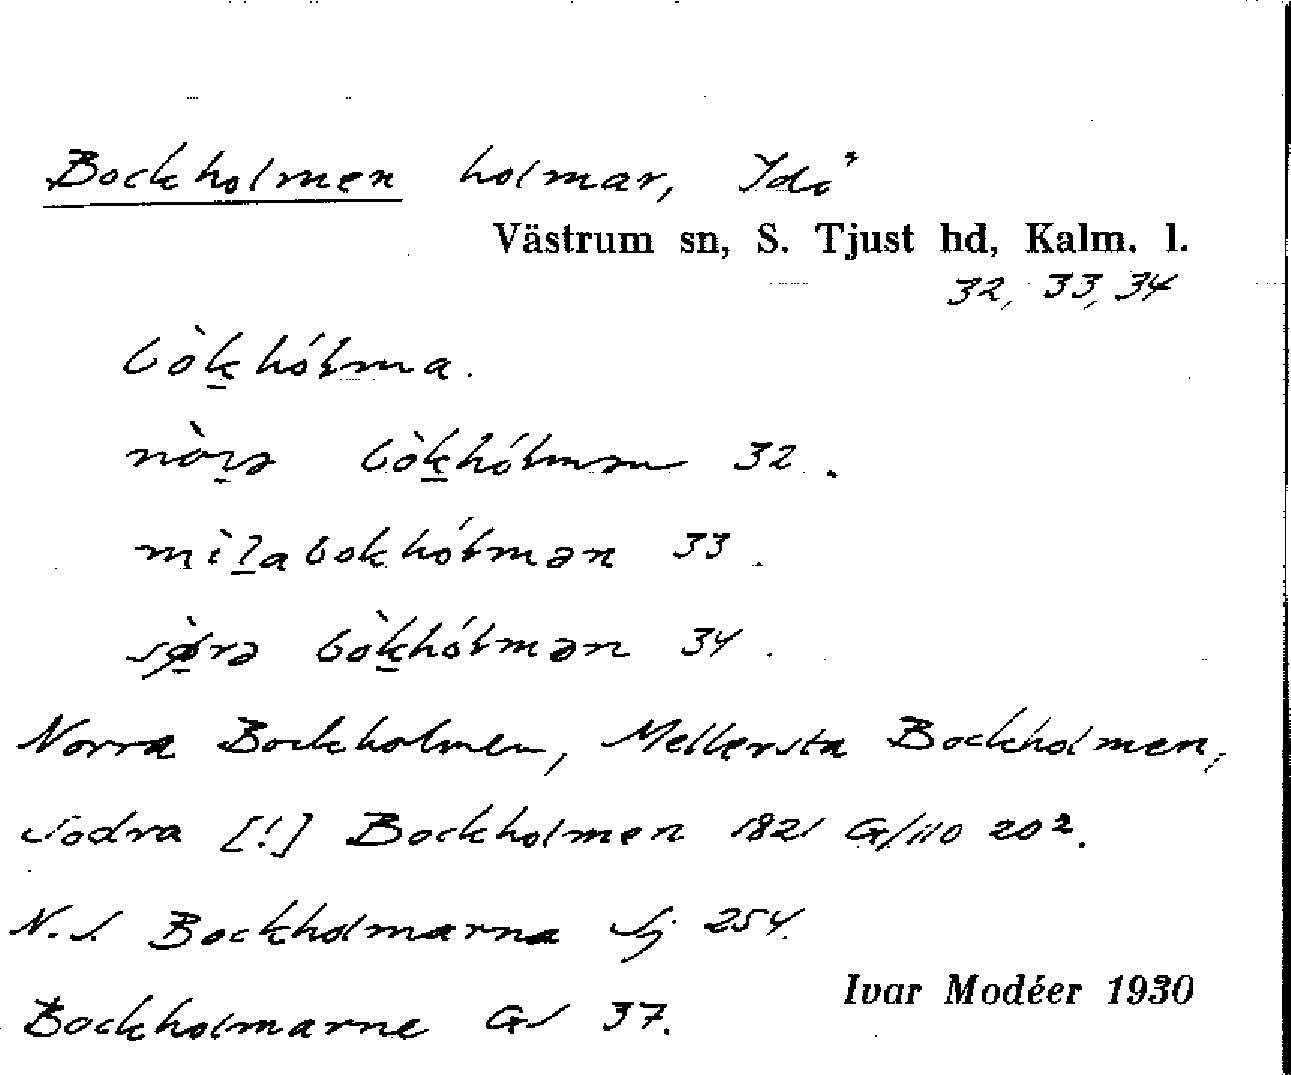 Bockholmen holmar, Idö
Västrum sn, S. Tjust hd, Kalm. l.
32, 33, 34
bòk̠hóɫma.
nòrə bòk̠hóɫmən 32.
mìl̠a bokhóɫmən 33.
sø̀rə bòk̠hóɫmən 34.
Norra Bockholmen, Mellersta Bockholmen,
Sodra [!] Bockholmen 1821 G/110 20².
N.S. Bockholmarna Sj 254.
Ivar Modéer 1930
Bockholmarne GS 37.